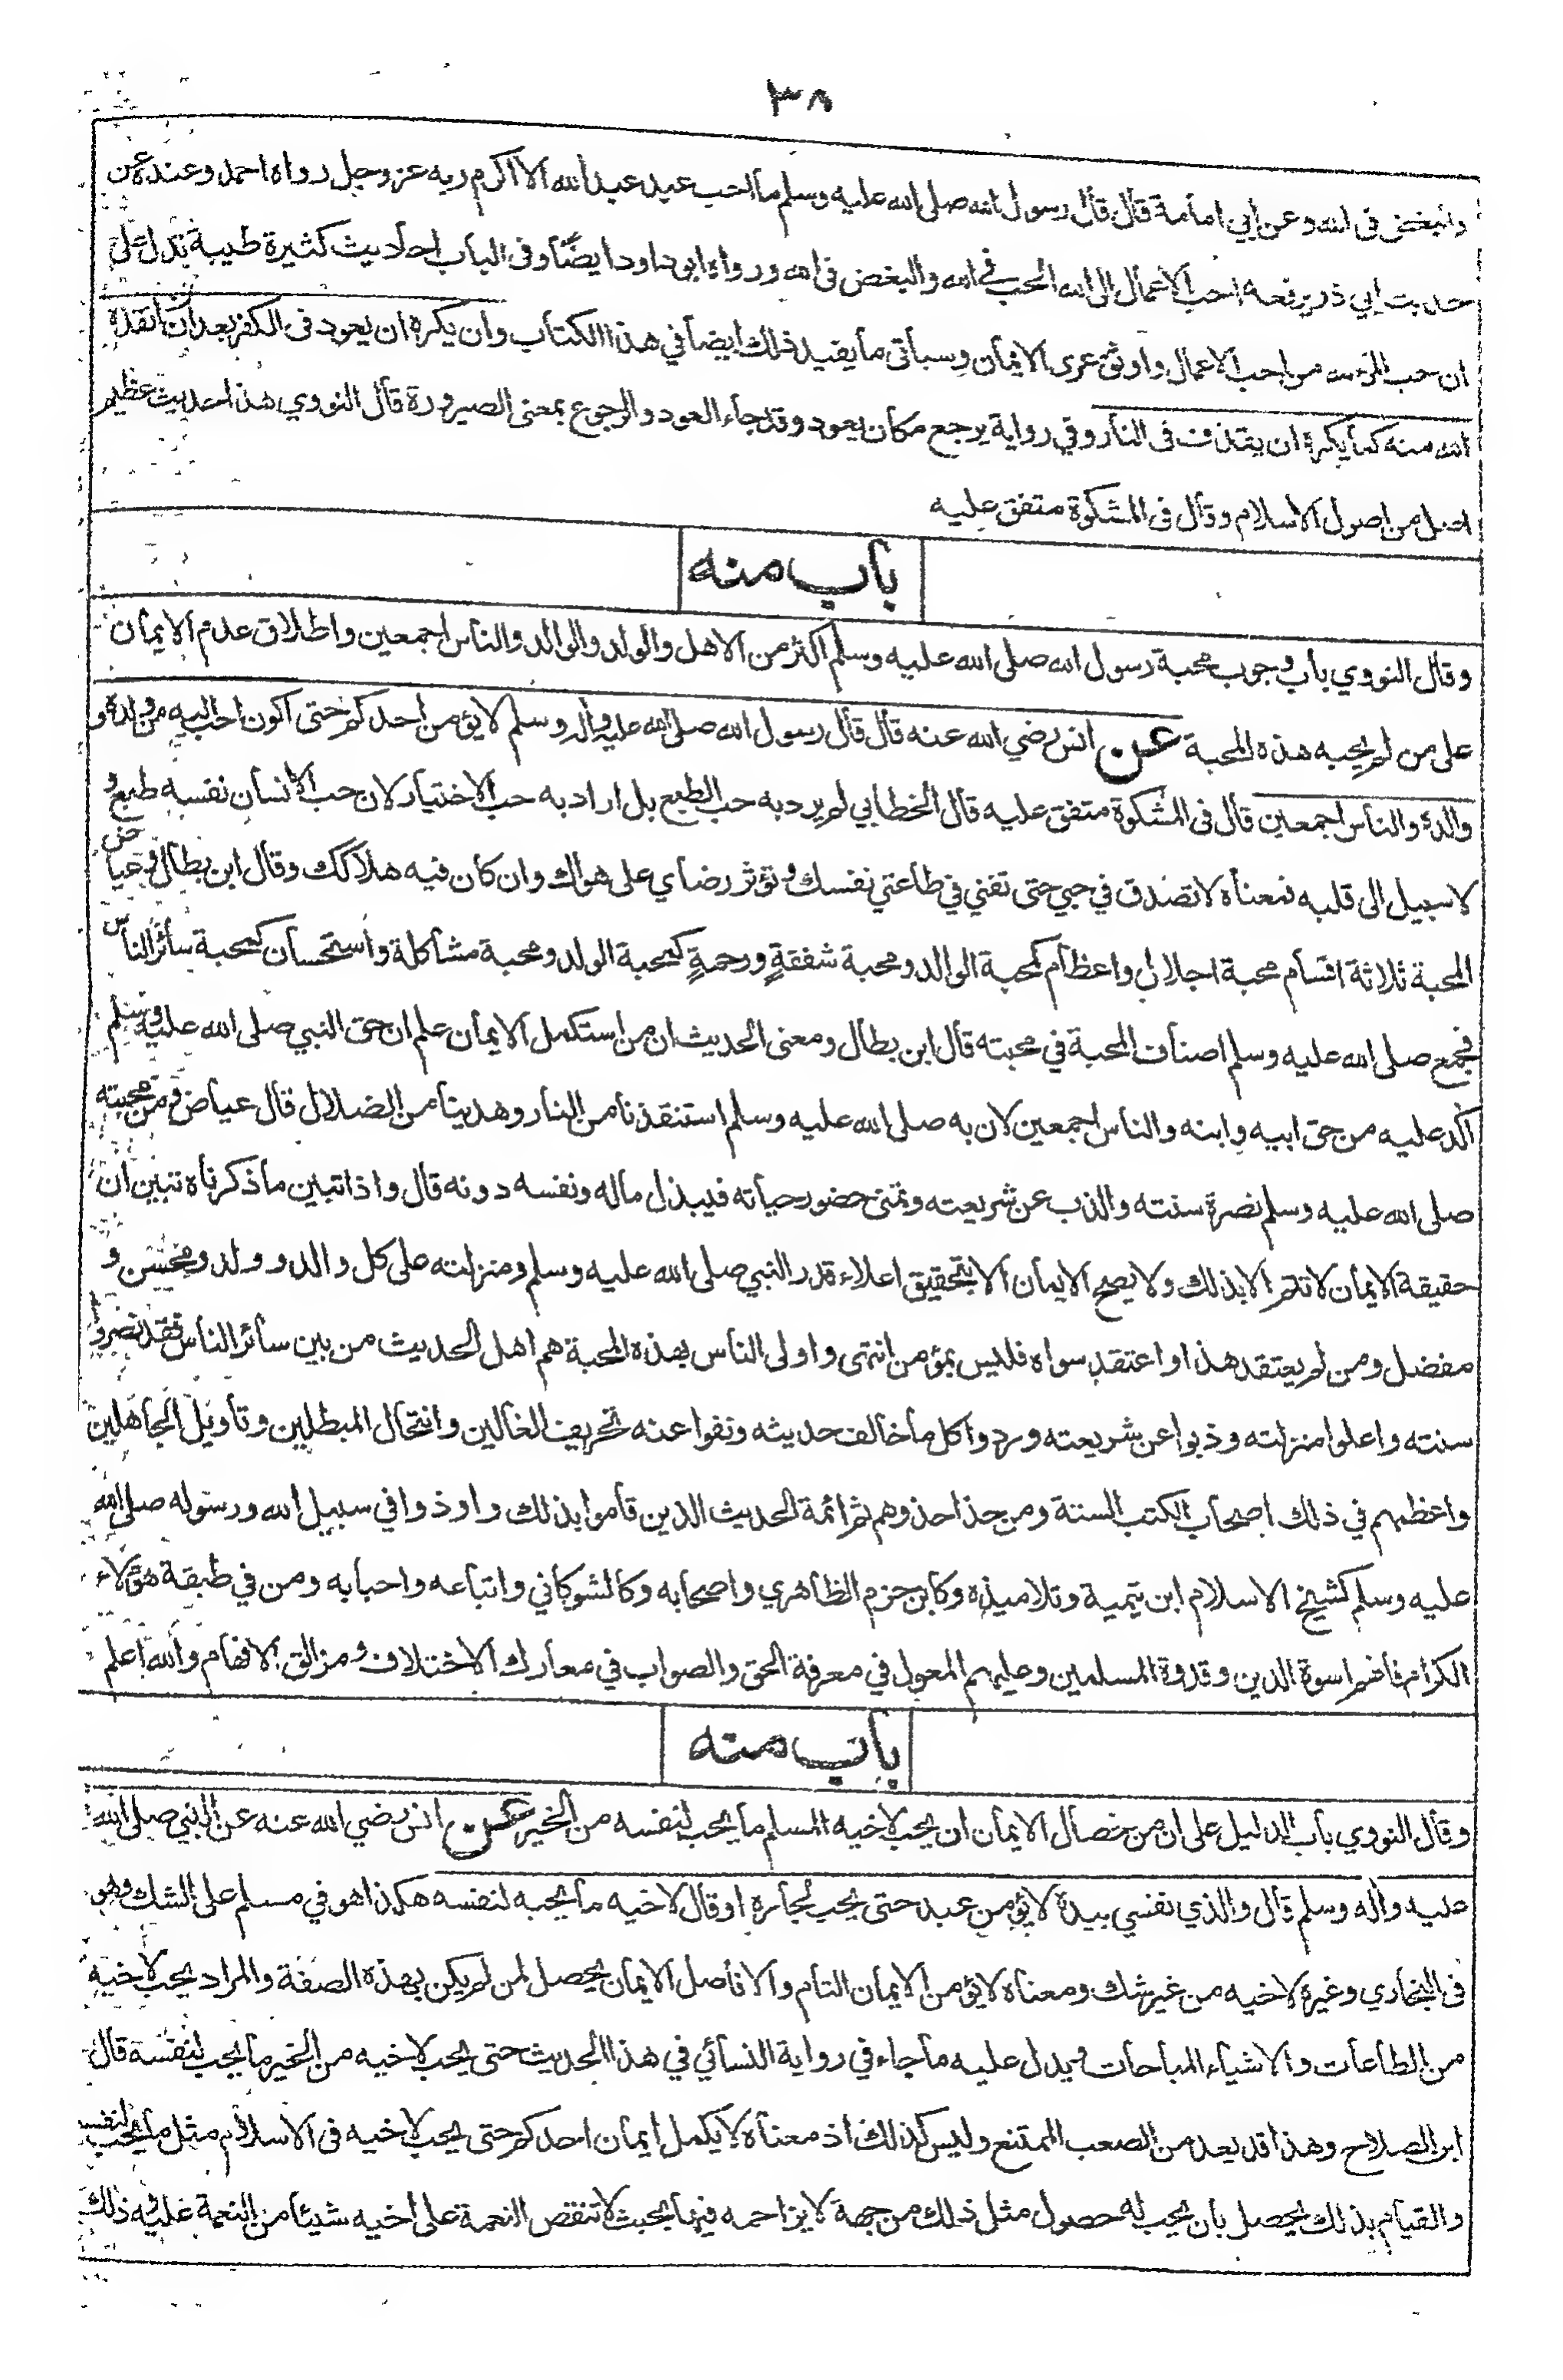 ٣٨
والبغض في الله وعن ابي امامة قال قال رسول الله صلى الله عليه وسلم ما احب عبد عبدا لله الا اكرم ربه عز وجل رواه احمد وعنده عن
حديث ابي ذر يرفعه احب الاعمال الى الله الحب في الله والبغض في الله ورواه ابو داود ايضا وفي الباب احاديث كثيرة طيبة تدل على
ان حب المرء لله من احب الاعمال واوثق عرى الايمان وسيأتي ما يفيد ذلك ايضا في هذا الكتاب وان يكره ان يعود في الكفر بعد ان انقذه
الله منه كما يكره ان يقذف في النار وفي رواية يرجع مكان يعود وقد جاء العود والرجوع بمعنى الصيرورة قال النووي هذا حديث عظيم
اصل من اصول الاسلام وقال في المشكوة متفق عليه
باب منه
وقال النووي باب وجوب محبة رسول الله صلى الله عليه وسلم اكثر من الاهل والولد والوالد والناس اجمعين واطلاق عدم الايمان
على من لم يحبه هذه المحبة عن انس رضي الله عنه قال قال رسول الله صلى الله عليه وآله وسلم لا يؤمن احدكم حتى اكون احب اليه من ولده و
والده والناس اجمعين قال في المشكوة متفق عليه قال الخطابي لم يرد به حب الطبع بل اراد به حب الاختيار لان حب الانسان نفسه طبع و
لا سبيل الى قلبه فمعناه لا تصدق في حبي حتى تفني في طاعتي نفسك وتؤثر رضاي على هواك وان كان فيه هلاكك وقال ابن بطال وعياض
المحبة ثلاثة اقسام محبة اجلال واعظام كمحبة الوالد ومحبة شفقةٍ ورحمةٍ كمحبة الولد ومحبة مشاكلة واستحسان كمحبة سائر الناس
فجمع صلى الله عليه وسلم اصناف المحبة في محبته قال ابن بطال ومعنى الحديث ان من استكمل الايمان علم ان حق النبي صلى الله عليه وسلم
آكد عليه من حق ابيه وابنه والناس اجمعين لان به صلى الله عليه وسلم استنقذنا من النار وهدينا من الضلال قال عياض ومن محبته
صلى الله عليه وسلم نصرة سنته والذب عن شريعته وتمنى حضور حياته فيبذل ماله ونفسه دونه قال واذا تبين ما ذكرناه تبين ان
حقيقة الايمان لا تتم الا بذلك ولا يصح الايمان الا بتحقيق اعلاء قدر النبي صلى الله عليه وسلم ومنزلته على كل والد وولد ومحسن و
مفضل ومن لم يعتقد هذا واعتقد سواه فليس بمؤمن انتهى واولى الناس بهذه المحبة هم اهل الحديث من بين سائر الناس فقد نصروا
سنته واعلوا منزلته وذبوا عن شريعته وردوا كل ما خالف حديثه ونفوا عنه تحريف الغالين وانتحال المبطلين وتأويل الجاهلين
واعظمهم في ذلك اصحاب الكتب الستة ومن حذا حذوهم ثم ائمة الحديث الذين قاموا بذلك واوذوا في سبيل الله ورسوله صلى الله
عليه وسلم كشيخ الاسلام ابن تيمية وتلاميذه وكابن حزم الظاهري واصحابه وكالشوكاني واتباعه واحبابه ومن في طبقة هؤلاء
الكرام فانهم اسوة الدين وقدوة المسلمين وعليهم المعول في معرفة الحق والصواب في معارك الاختلاف ومزالق الافهام والله اعلم
باب منه
وقال النووي باب الدليل على ان من خصال الايمان ان يحب لاخيه المسلم ما يحب لنفسه من الخير عن انس رضي الله عنه عن النبي صلى الله
عليه وآله وسلم قال والذي نفسي بيده لا يؤمن عبد حتى يحب لجاره او قال لاخيه ما يحبه لنفسه هكذا هو في مسلم على الشك وهو
في البخاري وغيره لاخيه من غير شك ومعناه لا يؤمن الايمان التام والا فاصل الايمان يحصل لمن لم يكن بهذه الصفة والمراد يحب لاخيه
من الطاعات والاشياء المباحات ويدل عليه ما جاء في رواية النسائي في هذا الحديث حتى يحب لاخيه من الخير ما يحب لنفسه قال
ابن الصلاح وهذا قد يعد من الصعب الممتنع وليس كذلك اذ معناه لا يكمل ايمان احدكم حتى يحب لاخيه في الاسلام مثل ما يحب لنفسه
والقيام بذلك يحصل بان يحب له حصول مثل ذلك من جهة لا يزاحمه فيها بحيث لا تنقص النعمة على اخيه شيئا من النعمة عليه وذلك